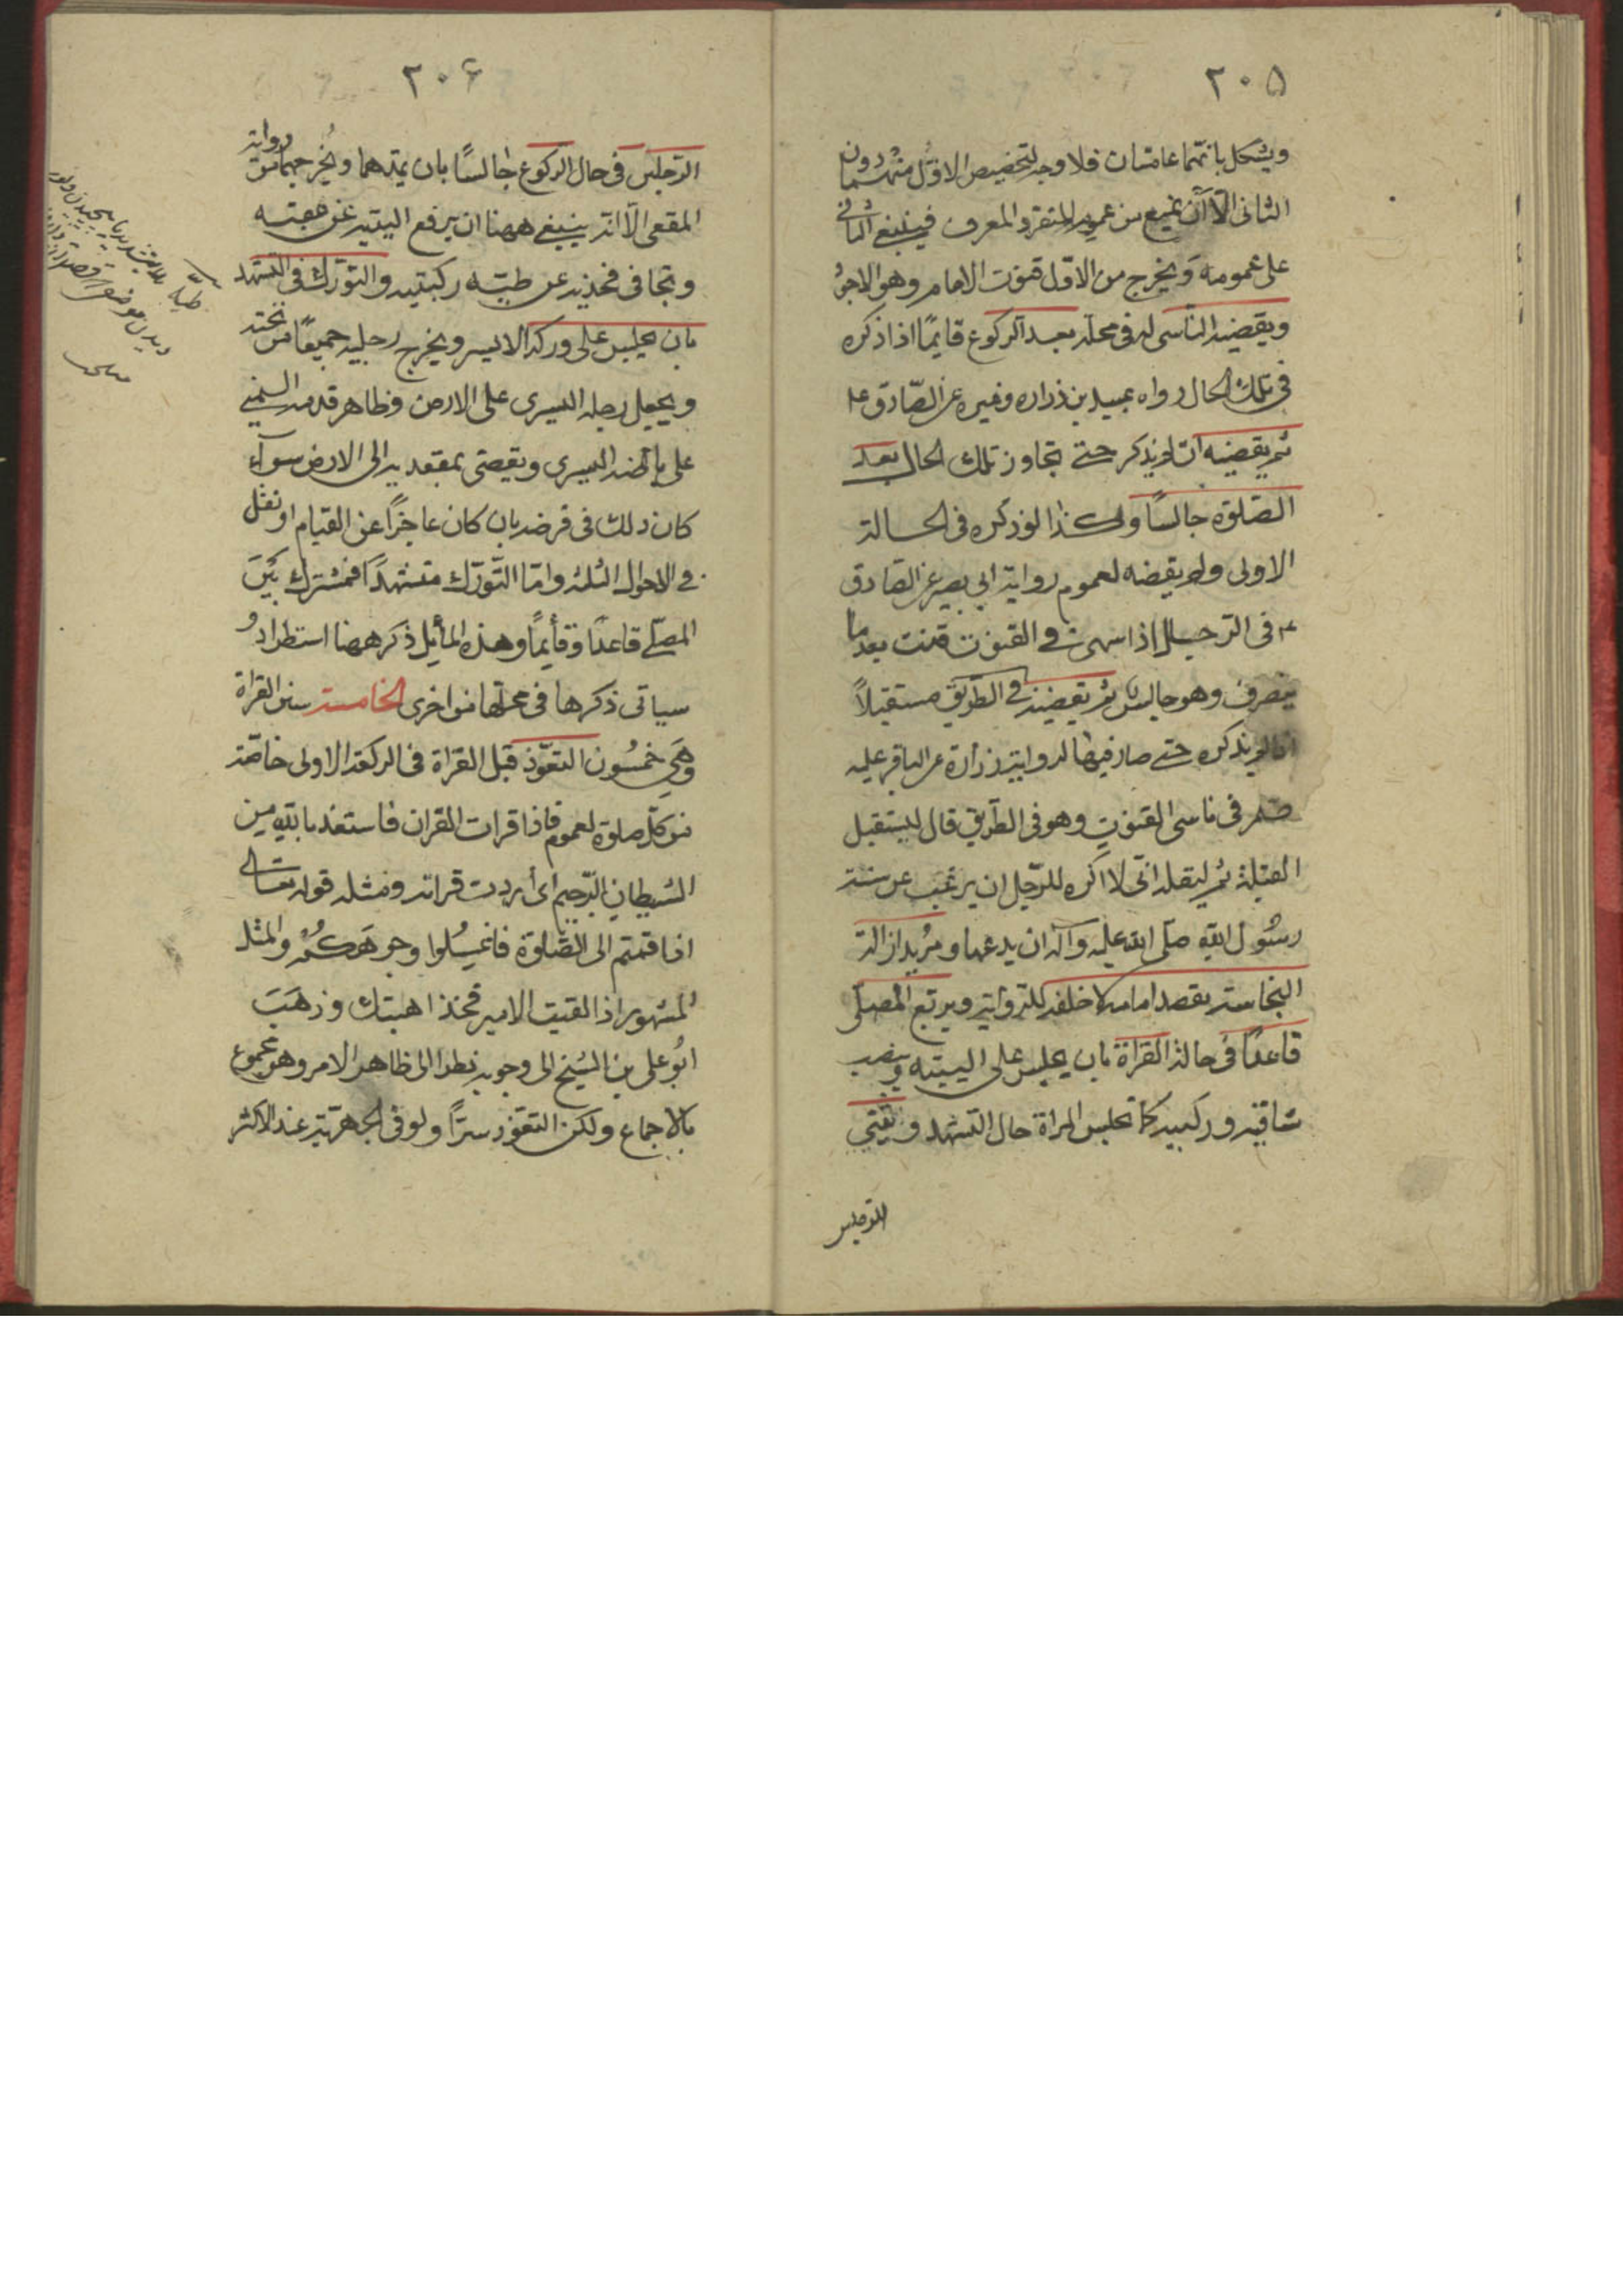 ٢٠۵
ويشكل بانهما عامتان فلا وجه لتخصيص الاول منهما دون
الثانى الا ان يمنع من عموم المنفرد المعرف فينبغى الثانى
على عمومه ويخرج من الاول قنوت الامام وهو الاجود
ويقضيه الناسى له فى محله بعد الركوع قايمًا اذا ذكره
فى تلك الحال رواه عبيد بن زراره وغيره عن الصّادق ع
ثم يقضيه ان لم يذكر حتى تجاوز تلك الحال بعد
الصّلوة جالسًا وكذا لو ذكره فى الحالة
الاولى ولم يقضه لعموم رواية ابي بصير عن الصادق
ع فى الرّجل اذا سهى فى القنوت قنت بعد ما
ينصرف وهو جالس ثم يقضيه فى الطّريق مستقبلاً
اذا لم يذكره حتى صار فيها لرواية زرارة عن الباقر عليه
فى ناسى القنوت وهو فى الطّريق قال ليستقبل
القبلة ثم ليقله انى لا اكره للرّجل ان يرغب عن سنة
رسُول الله صلّى الله عليه وآله ان يدعها ومُريد ازالة
النجاسة يقصد امامه لا خلفه للرّواية ويربّع المُصلّى
قاعدًا فى حالة القراة بان يجلس على اليته وينصب
ساقيه وركبيه كما تجلس المراة حال التّشهد ويثني
الرّجلين
٢٠۶
الرّجلين فى حال الركوع جالسًا بان يمدّهما ويُخرجهما من روائه
المقعى الّا انّه ينبغى ههنا ان يرفع اليتيه عن عقبيه
وتجافى فخذيه عن طيّة ركبتيه والتورّك فى التشهد
بان يجلس على وركه الايسر ويخرج رجليه جميعًا من تحته
ويجعل رجله اليسرى على الارض وظاهر قدمه اليمنى
على باطنه اليسرى ويفضى بمقعديه الى الارض سوآء
كان ذلك فى فرضه بان كان عاجزًا عن القيام او نفل
فى الاحوال الثلثة وامّا التّورّك متشهدًا فمشترك بَيْنَ
المصلّى قاعدًا وقائمًا وهذه المسايل ذكرها هنا استطرادًا و
سياتى ذكرها فى محلها مرة اخرى الخامسة سنن القراة
وهَى خمسُون التعوّذ قبل القراة فى الركعة الاولى خاصّة
من كلّ صلوة لعموم فاذا قرات القران فاستعذ بالله من
الشيطان الرّجيم اى أردت قراته ومثله قوله تعالى
اذا قمتم الى الصّلوة فاغسِلُوا وجوهَكُمْ والمثل
المشهور اذا لقيت الامير فخذ اهبتك وذَهَبَ
ابُو على بن الشيخ الى وجوبه نظرا الى ظاهر الامر وهو محجوج
بالاجماع وليكن التعوّذ سرًّا ولو فى الجهرّية عند الاكثر